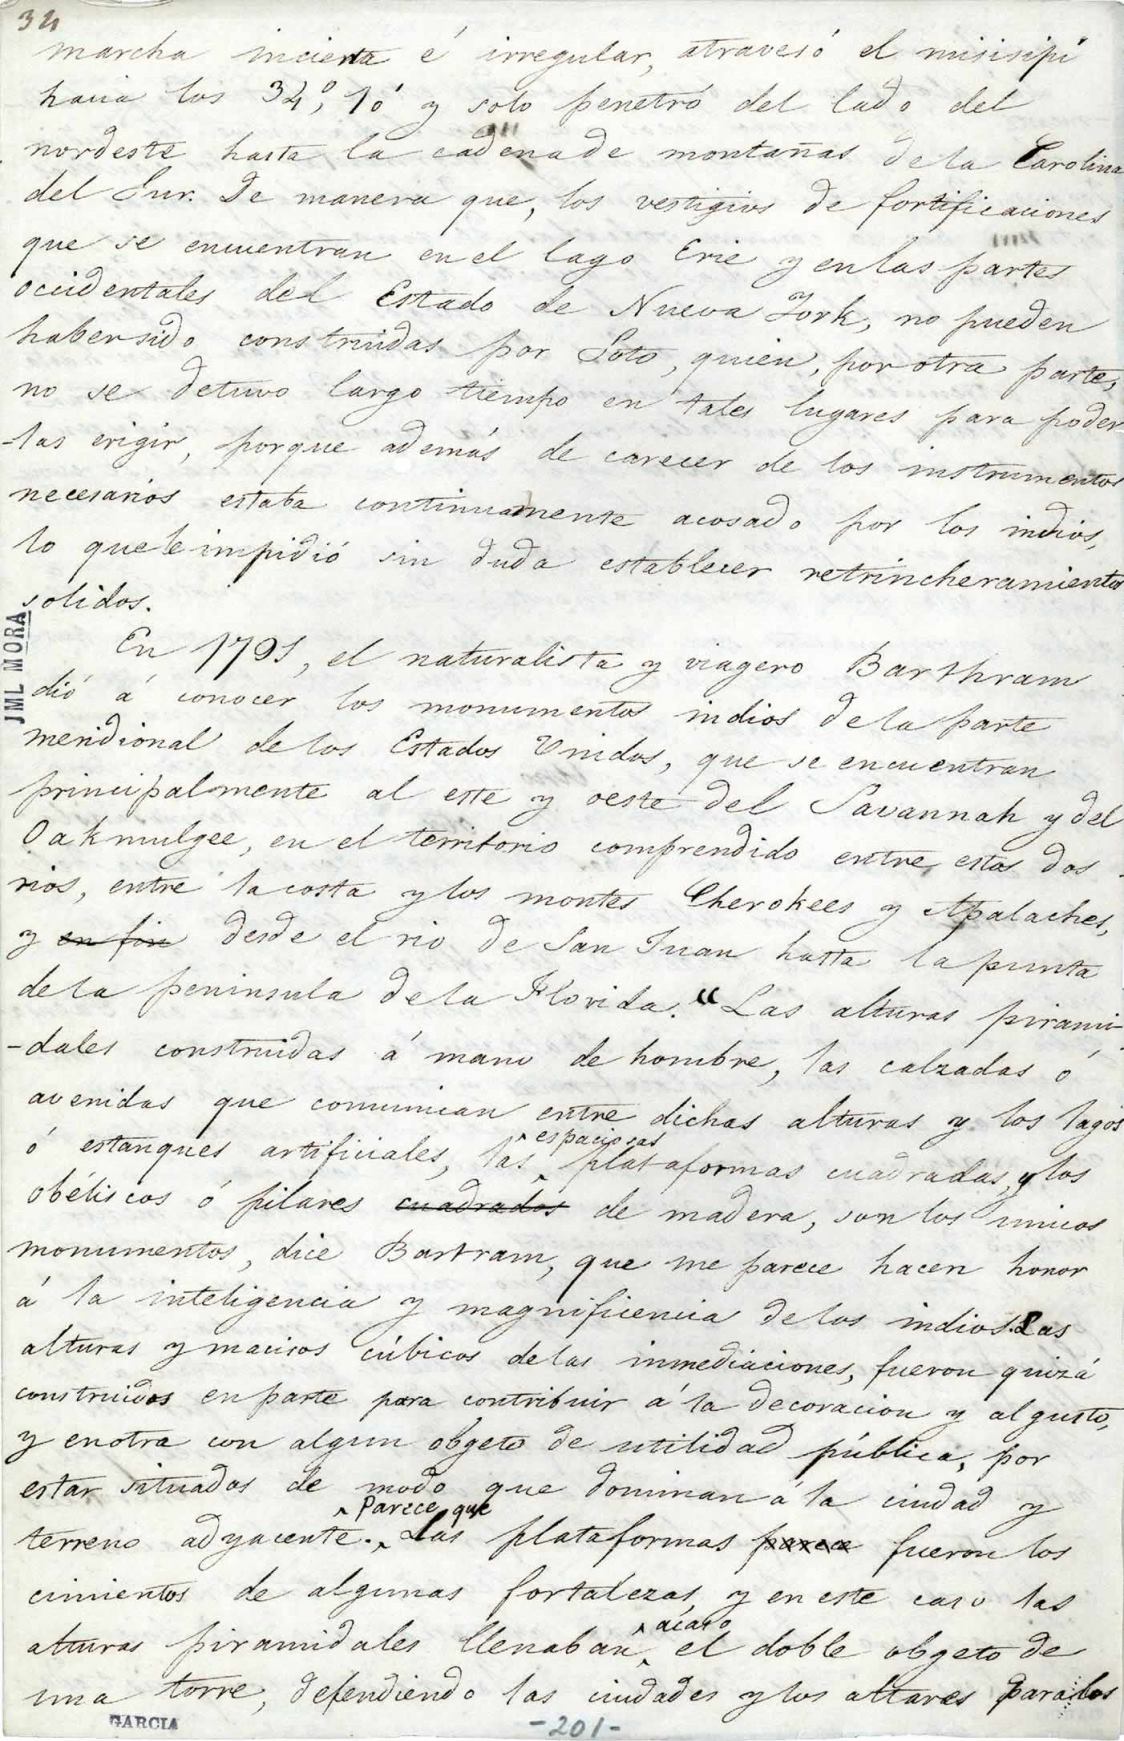 34
marcha incierta é irregular, atravesó el misisipi
hacia los 34°, 10' y solo penetró del lado del
nordeste hasta la cadena de montañas de la Carolina
del Sur. De manera que, los vestigios de fortificaciones
que se encuentran en el lago Erie y en las partes
occidentales del Estado de Nueva York, no pueden
haber sido construidas por Soto, quien, por otra parte,
no se detuvo largo tiempo en tales lugares para poder
-las erigir, porque además de carecer de los instrumentos
necesarios estaba continuamente acosado por los indios,
lo que le impidió sin duda establecer retrincheramientos
solidos.
JML MORA
En 1791, el naturalista y viagero Barthram
dió á conocer los monumentos indios de la parte
meridional de los Estados Unidos, que se encuentran
principalmente al este y oeste del Savannah y del
Oakmulgee, en el territorio comprendido entre estos dos
rios, entre la costa y los montes Cherokees y Apalaches,
y en fin desde el rio de San Juan hasta la punta
de la peninsula de la Florida. "Las alturas pirami-
-dales construidas á mano de hombre, las calzadas ó
avenidas que comunican entre dichas alturas y los lagos
ó estanques artificiales, las espaciosas plataformas cuadradas, y los
obéliscos ó pilares cuadrados de madera, son los unicos
monumentos, dice Bartram, que me parece hacen honor
á la inteligencia y magnificencia de los indios. Las
alturas y macisos cúbicos de las inmediaciones, fueron quizá
construidos en parte para contribuir á la decoracion y al gusto,
y en otra con algun obgeto de utilidad pública, por
estar situados de modo que dominan á la ciudad y
terreno adyacente. Parece que Las plataformas parece fueron los
cimientos de algunas fortalezas, y en este caso las
alturas piramidales llenaban acaso el doble obgeto de
una torre, defendiendo las ciudades y los altares para los
GARCIA
-201-